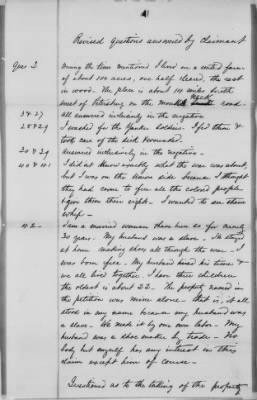 Revised questions answered by claimant
Ques 2 During the time mentioned I lived on a rented farm
of about 100 acres, one half cleared, the rest
in wood. The place is about miles
west of Petersburg on the road
3 & 27 all answered inclusively in the negative
28 & 29 I washed for the Yankee soldiers. I fed them &
took care of the sick & wounded.
answered inclusively in the negative -
40 & 41 I did not know exactly what the war was about,
but I was on the Union side because I thought
they had come to free all the colored people &
gave them their right. I wanted to see them
whip -
42 - I am a married woman & have been so for nearly
20 years. My husband was a slave. He stayed
at home making shoes all through the war. I
was born free. My husband hired his time &
we all lived together. I have three children
the oldest is about 22. The property named in
the petition was mine alone - that is, it all
stood in my name because my husband was
a slave. We made it by our own labor. My
husband was a shoe maker by trade. No
body but myself has any interest in this
claim except him of course.
Questioned as to the taking of the property